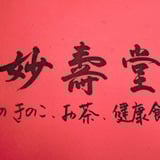 妙壽堂
のきのこ、お茶、健康食